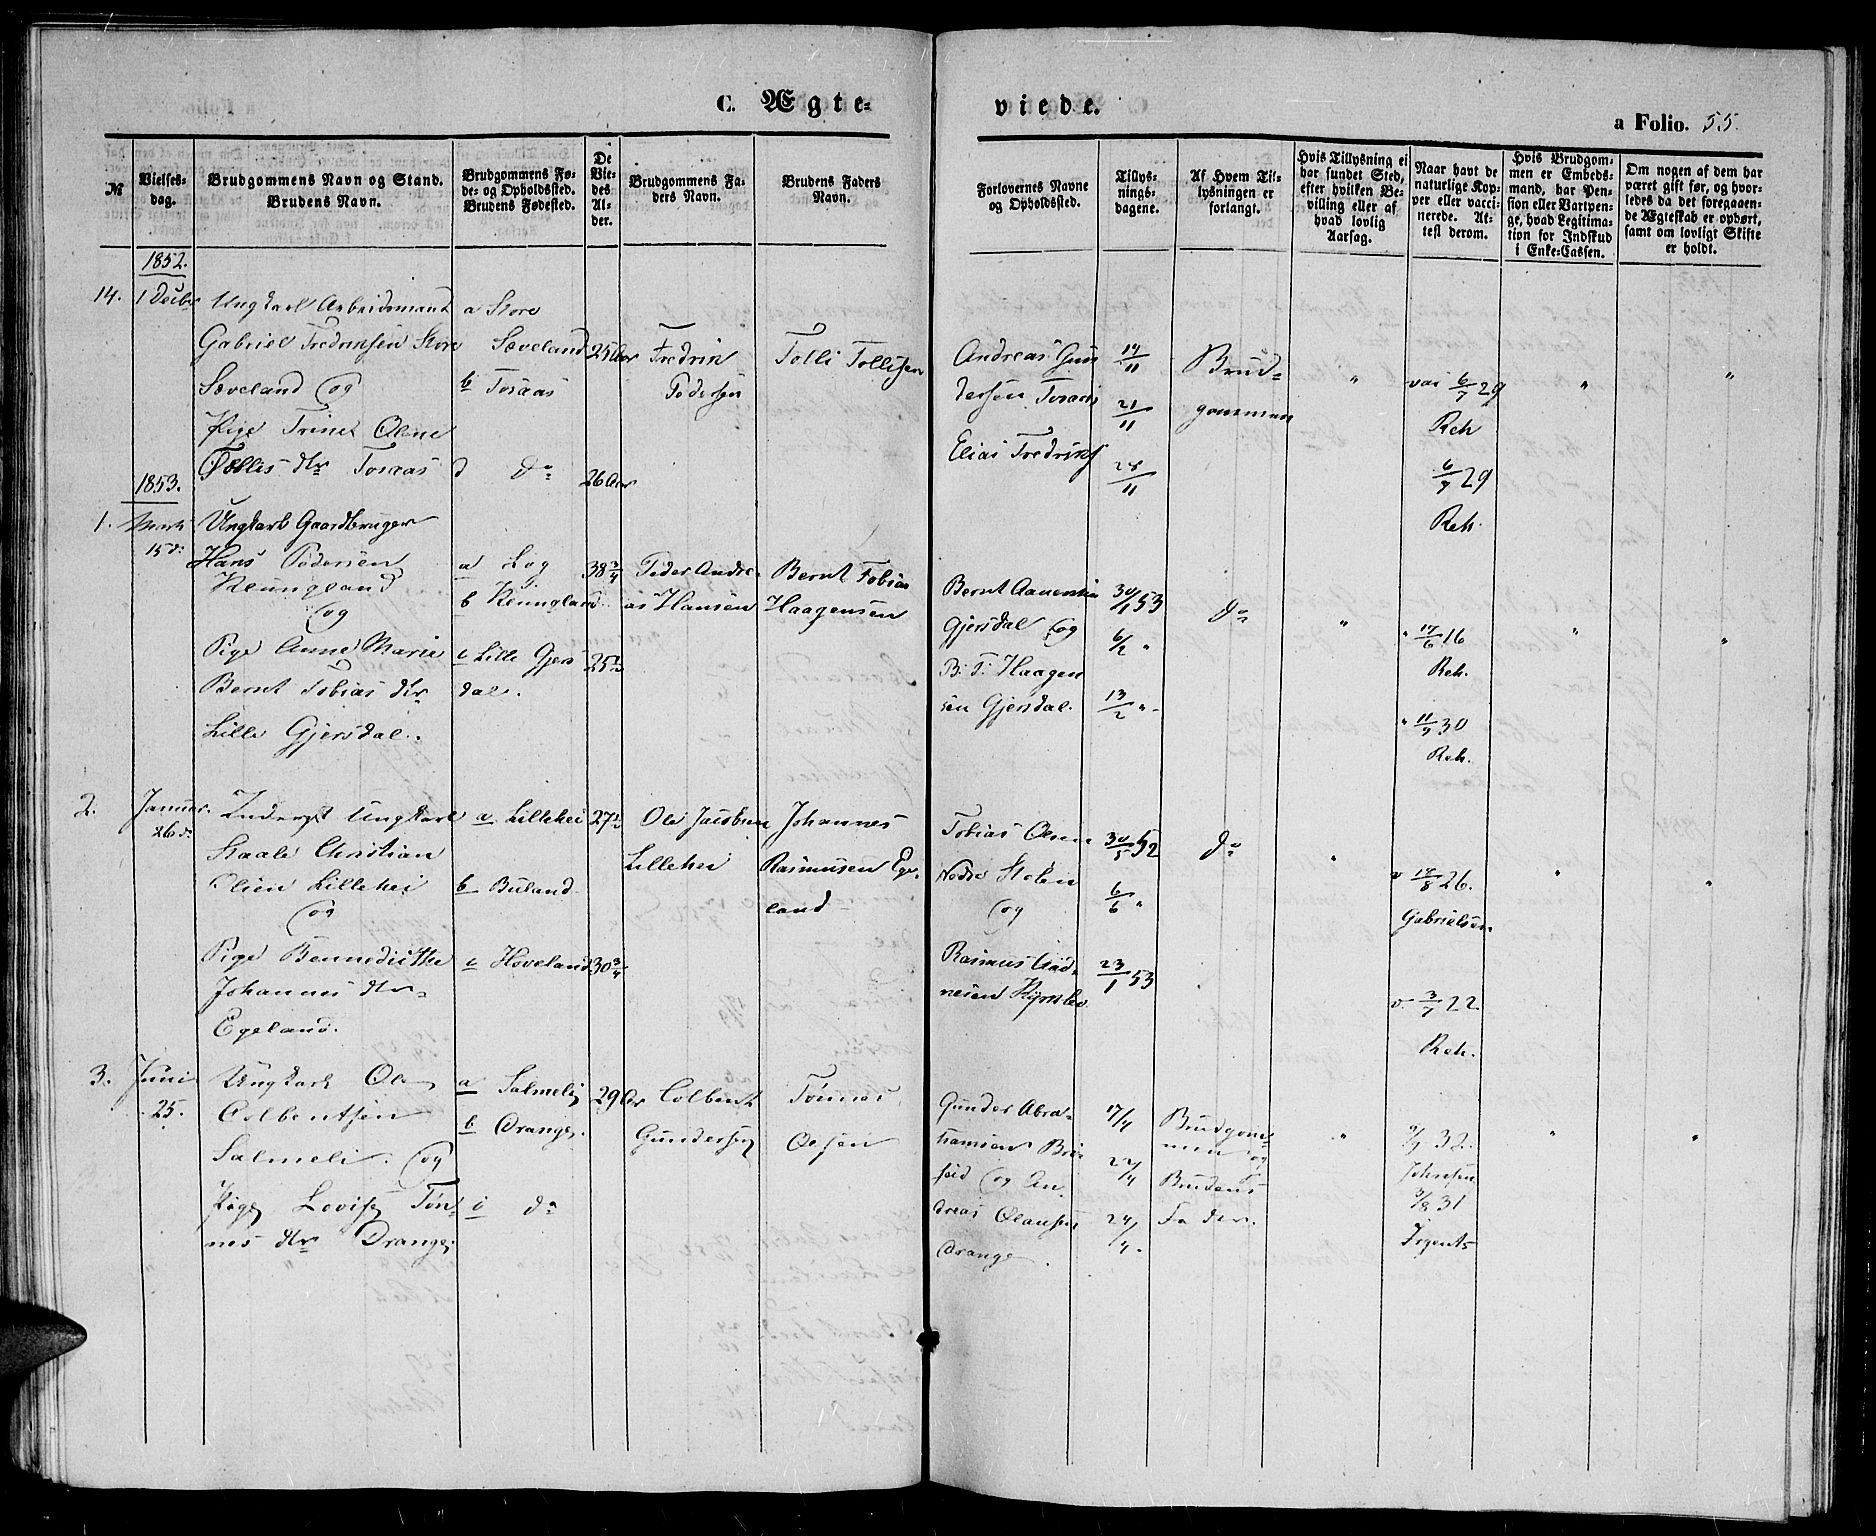 C. Ægte-
viede.
a Folio. 55.
№
Vielses-
dag.
Brudgommens Navn og Stand.
Brudens Navn.
Brudgommens Fø-
de- og Opholdssted.
Brudens Fødested.
De
Vie-
des
Al-
der.
Brudgommens Fa-
ders Navn.
Brudens Faders
Navn.
Forlovernes Navne
og Opholdssted.
Tillys-
nings-
dagene.
Af Hvem Til-
lysningen er
forlangt.
Hvis Tillysning ei
har fundet Sted,
efter hvilken Be-
villing eller af
hvad lovlig
Aarsag.
Naar havt de
naturlige Kop-
per eller vacci-
nerede. At-
test derom.
Hvis Brudgom-
men er Embeds-
mand, har Pen-
sion eller Vartpen-
ge, hvad Legitima-
tion for Indskud
i Enke-Cassen.
Om nogen af dem har
været gift før, og hvor-
ledes da det foregaaen-
de Ægteskab er ophørt,
samt om lovligt Skifte
er holdt.
1852.
14.
1 Decbr
Ungkarl Arbeidsmand
Gabriel Fredriksen Store
Sæveland og
Pige Trine Oline
Tollis dtr Tosaas
a Store
Sæveland
b Tosaas
d do
25 Aar
26 Aar
Fredrik
Pedersen
Tolli Tollisen
Andreas Gun
dersen Tosaas
Elias Fredriks
14/11
21/11
28/11
Brud-
gommen
"
vac 6/7 29
Reh
6/7 29
Reh.
"
"
1853.
1.
Marts
15 d.
Ungkarl Gaardbruger
Hans Pedersen
Kleungland
og
Pige Anne Marie
Bernt Tobias dtr
Lille Gjersdal.
a Log
b Kleungland
c Lille Gjers
dal.
38 3/4
25 1/2
Peder Andre-
as Hansen
Bernt Tobias
Haagensen
Bernt
Gjersdal og
B. T. Haagen
sen Gjersdal.
30/1 53
6/2 "
13/2 "
do
"
" 14/6 16
Reh.
" 11/9 30
Reh.
"
"
2.
Januar
26 d.
Ungkarl
Staale Christian
Olsen Lillehei
og
Pige Bennedicthe
Johannes dtr
Egeland.
a Lillehei
b Buland
c Hoveland
27 1/2
30 3/4
Ole Jacobsen
Lillehei
Johannes
Rasmusen Ege-
land
Tobias Olsen
Nedre Stolen
og
Rasmus Aad-
nesen
30/5 52
6/6 "
23/1 53
do
"
v 14/8 26.
Gabrielsen
v 3/7 22.
Reh.
"
"
3.
Juni
25.
Ungkarl Ole
Colbentsen
Salmeli og
Pige Lovise Tøn-
nes dtr Drange.
a Salmeli
b Drange.
c do
29 Ar
Colbent
Gundersen
Tønnes
Olsen
Gunder Abra-
hamsen
og An-
dreas Olausen
Drange.
17/4
24/4
Brudgom-
men og
Brudens
Fader.
"
9/7 32.
Johnsen
3/8 31
"
"